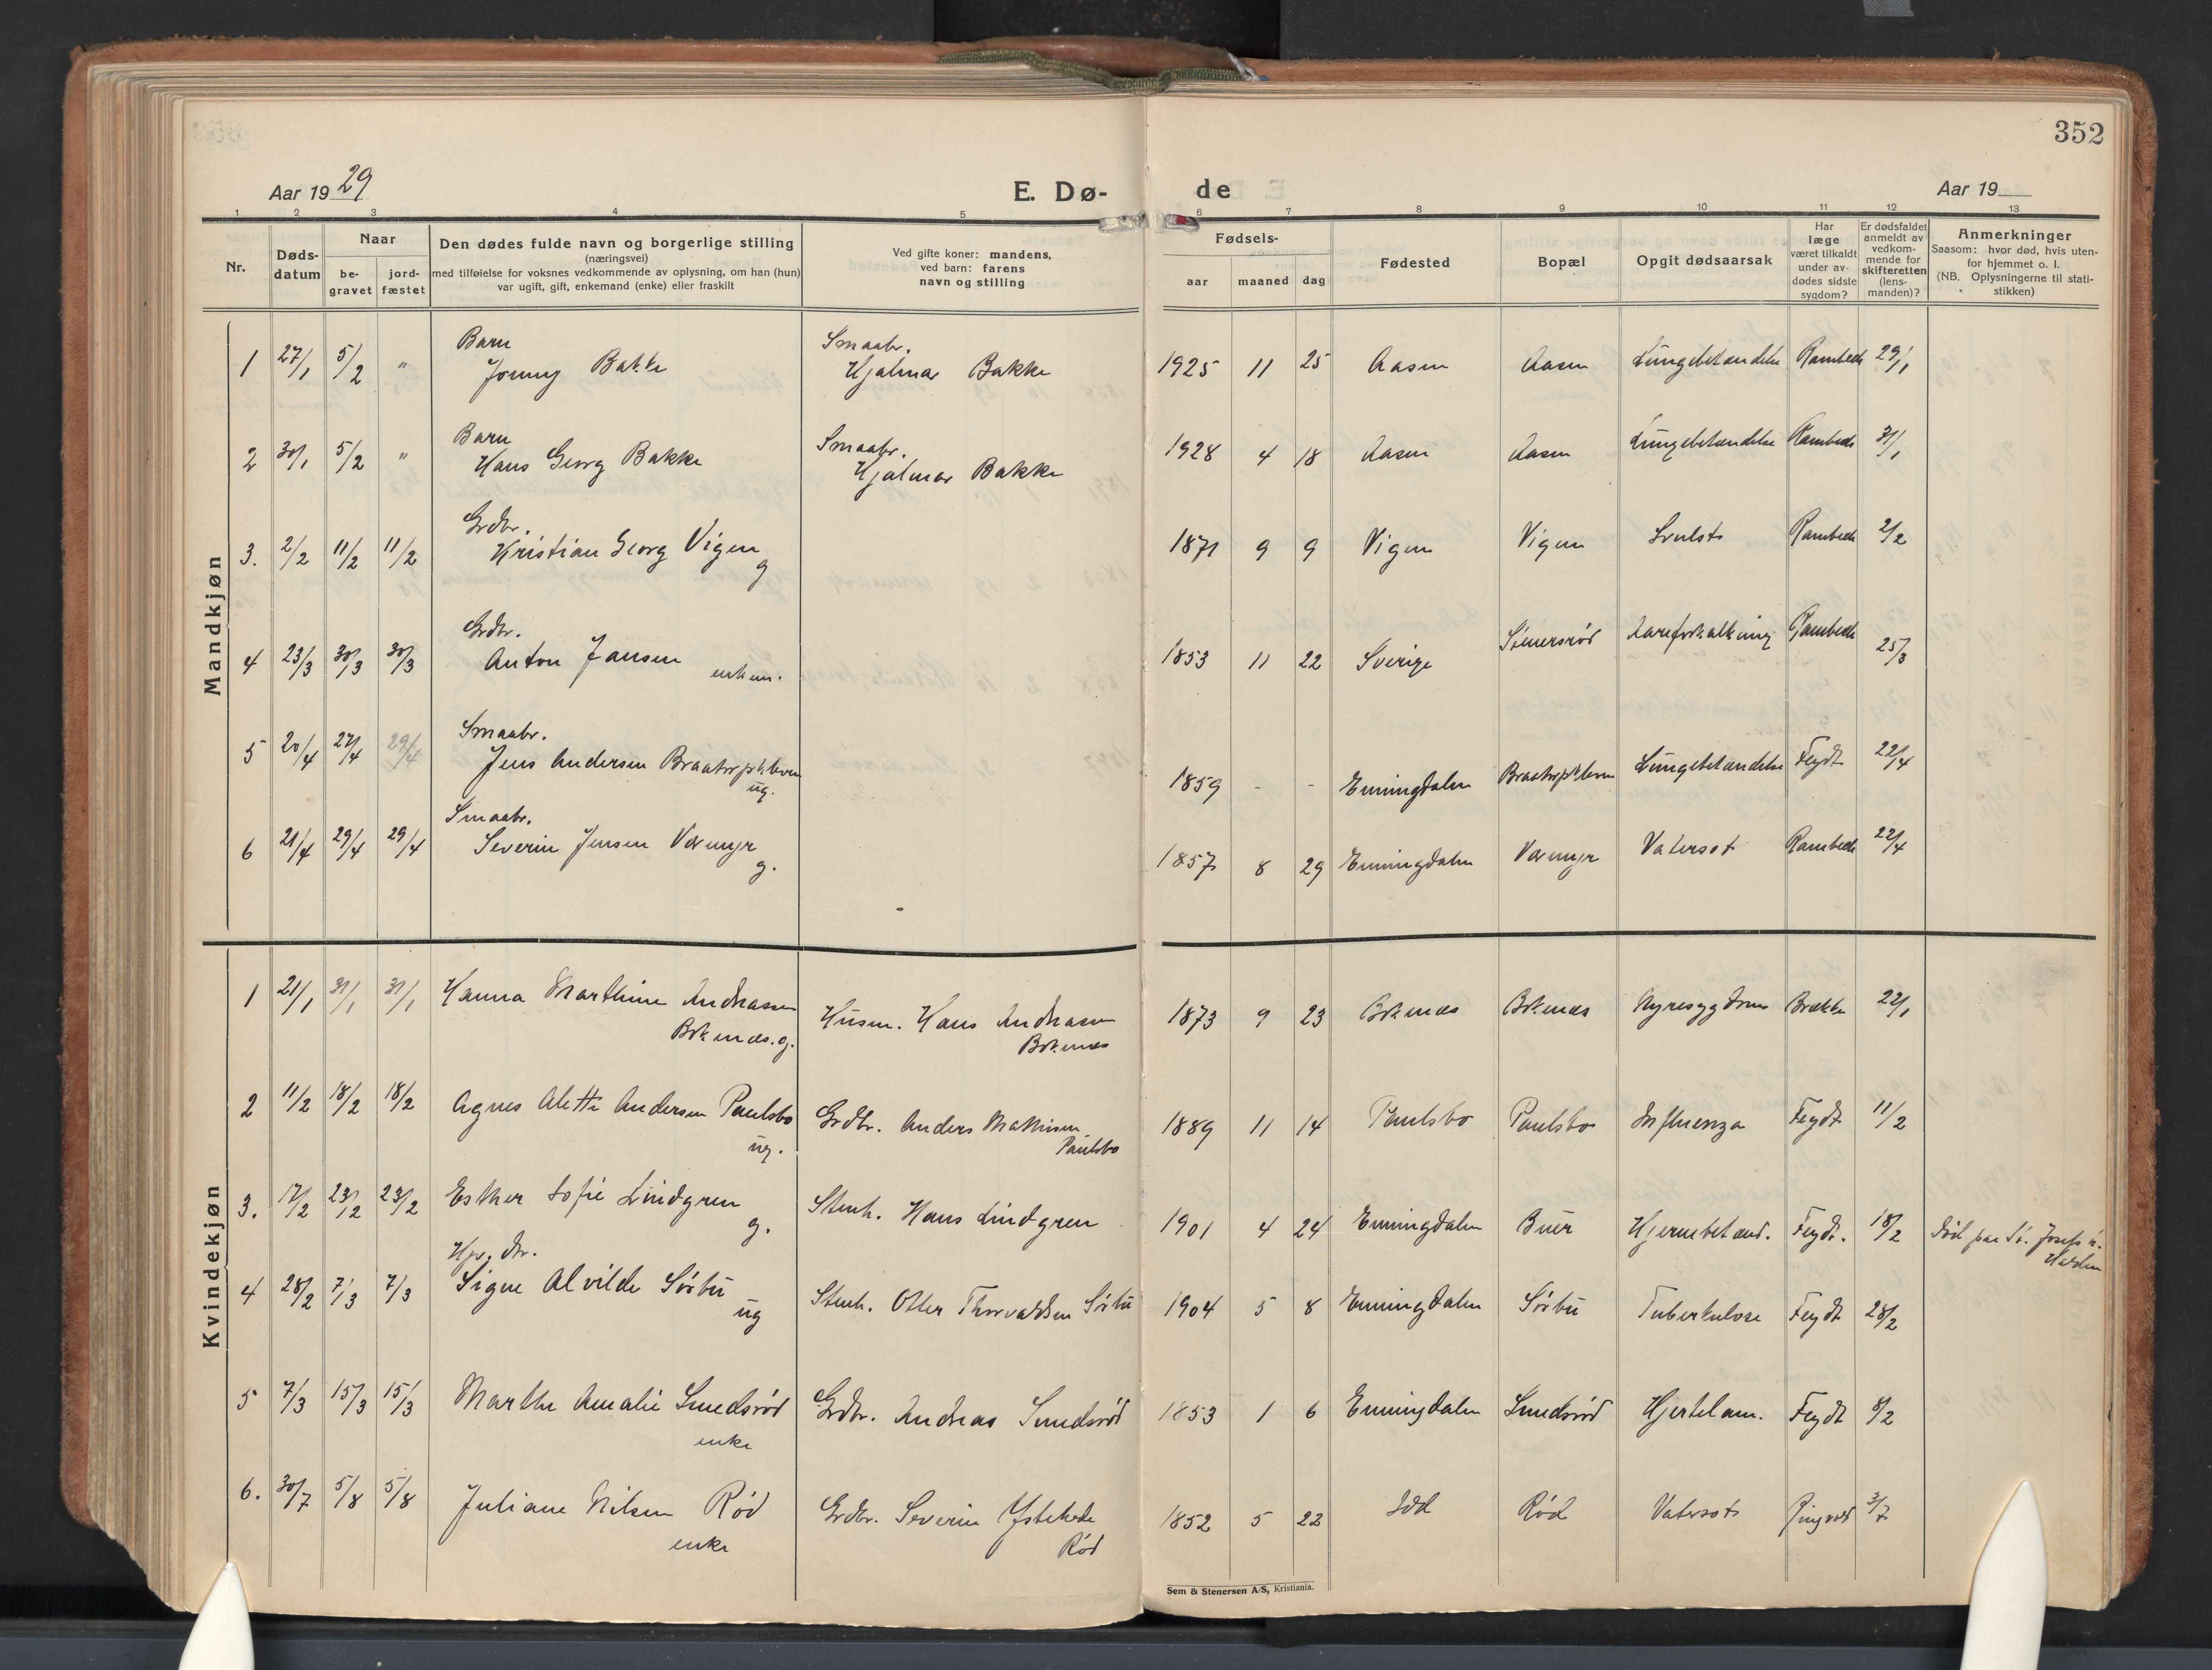 352
Aar 1929
E. Dø-
de
Aar 19
1 2 3 4 5 6 7 8 9 10 11 12 13
Nr.
Døds-
datum
Naar
be-
gravet
jord-
fæstet
Den dødes fulde navn og borgerlige stilling
(næringsvei)
med tilføielse for voksnes vedkommende av oplysning, om han (hun)
var ugift, gift, enkemand (enke) eller fraskilt
Ved gifte koner: mandens,
ved barn: farens
navn og stilling
Fødsels-
aar maaned dag
Fødested
Bopæl
Opgit dødsaarsak
Har
læge
været tilkaldt
under av-
dødes sidste
sygdom?
Er dødsfaldet
anmeldt av
vedkom-
mende for
skifteretten
(lens-
manden)?
Anmerkninger
Saasom: hvor død, hvis uten-
for hjemmet o. l.
(NB. Oplysningerne til stati-
stikken)
Mandkjøn
Barn Smaabr.
1 27/1 5/2 " Jonny Bakke Hjalmar Bakke 1925 11 25 Aasen Aasen Lungebetændelse Rambech 29/1
Barn Smaabr.
2 30/1 5/2 " Hans Georg Bakke Hjalmar Bakke 1928 4 18 Aasen Aasen Lungebetændelse Rambech 31/1
Grdbr.
3. 2/2 11/2 11/2 Kristian Georg Vigen g 1871 9 9 Vigen Vigen Svulst Rambech 2/2
Grdbr.
4 23/3 30/3 30/3 Anton Jansen enkem. 1853 11 22 Sverige Aareforkalkning Rambech 25/3
Smaabr.
5 20/4 27/4 29/4 Jens Andersen ug. 1859 - - Enningdalen Lungebetændelse Feydt 22/4
Smaabr.
6 21/4 29/4 29/4 Severin Jensen Vormyr g. 1857 8 29 Enningdalen Vormyr Vatersot Rambech 22/4
Kvindekjøn
1 21/1 31/1 31/1 Hanna Marthine Andreassen Husm. Hans Andreasen 1873 9 23 Boknæs Boknæs Nyresygdom Brække 22/1
Boknæs. g. Boknæs
2 11/2 18/2 18/2 Agnes Alette Andersen Paulsbo Grdbr. Anders Mathisen 1889 11 14 Paulsbo Paulsbo Influenza Feydt 11/2
ug. Paulsbo
3. 17/2 23/2 23/2 Esther Sofie Lindgren g. Stenh. Hans Lindgren 1901 4 24 Enningdalen Buer Hjernebetænd. Feydt. 18/2 Død paa St. Josefs h.
Halden
4 28/2 7/3 7/3 Signe Alvilde Sørbü ug Stenh. Otter Thorvaldsen Sørbü 1904 5 8 Enningdalen Sørbü Tuberkulose Feydt 28/2
5 7/3 15/3 15/3 Marthe Amalie Smedsrød Grdbr. Andreas Smedsrød 1853 1 6 Enningdalen Smedsrød Hjertelam. Feydt 8/2
enke
6. 30/7 5/8 5/8 Juliane Nilsen Rød Grdbr. Severin Ystehede 1852 5 22 Idd Rød Vatersot Ringvold
enke Rød
Sem & Stenersen A/S, Kristiania.